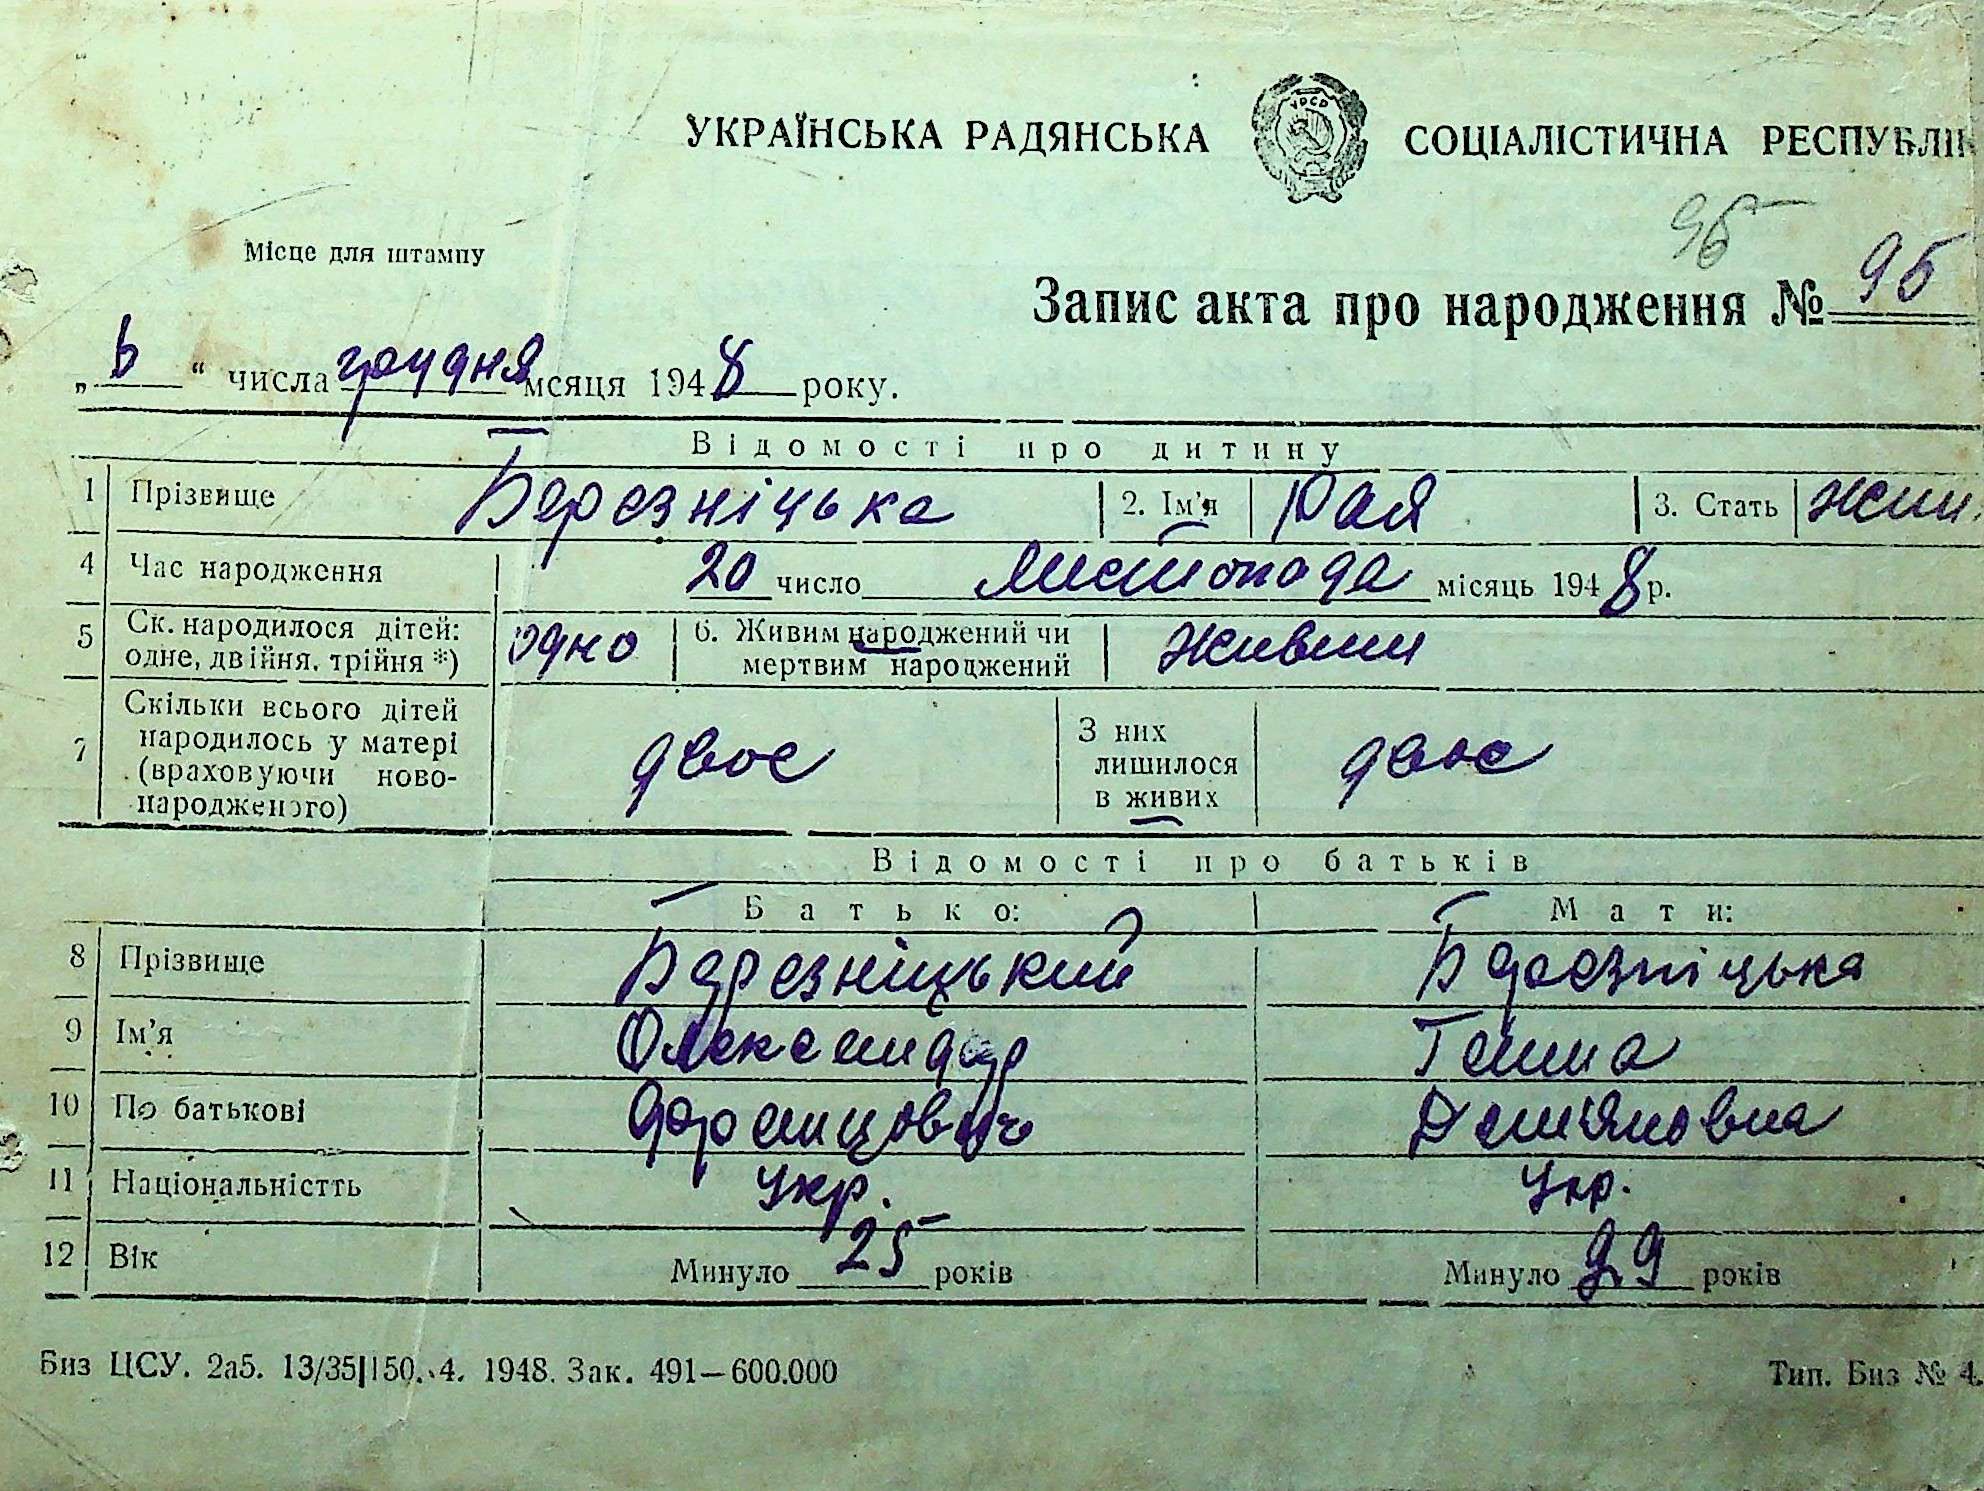 УРСР
УКРАЇНСЬКА РАДЯНСЬКА СОЦІАЛІСТИЧНА РЕСПУБЛІК
Місце для штампу
95
Запис акта про народження № 95
„ 6 “ числа грудня мсяця 1948 року.
Відомості про дитину
1 Прізвище Березніцька 2. Ім’я Рая 3. Стать жін.
4 Час народження 20 число листопада місяць 1948 р.
5 Ск. народилося дітей: одно 6. Живим народжений чи живим
одне, двійня, трійня *) мертвим народжений
7 Скільки всього дітей
народилось у матері двоє З них двоє
(враховуючи ново- лишилося
народженого) в живих
Відомості про батьків
Батько: Мати:
8 Прізвище Березніцький Березніцька
9 Ім’я Олександр Ганна
10 По батькові Францович Демяновна
11 Національністть Укр. Укр.
12 Вік Минуло 25 років Минуло 29 років
Биз ЦСУ. 2а5. 13/35|150. 4. 1948. Зак. 491—600.000 Тип. Биз № 4.